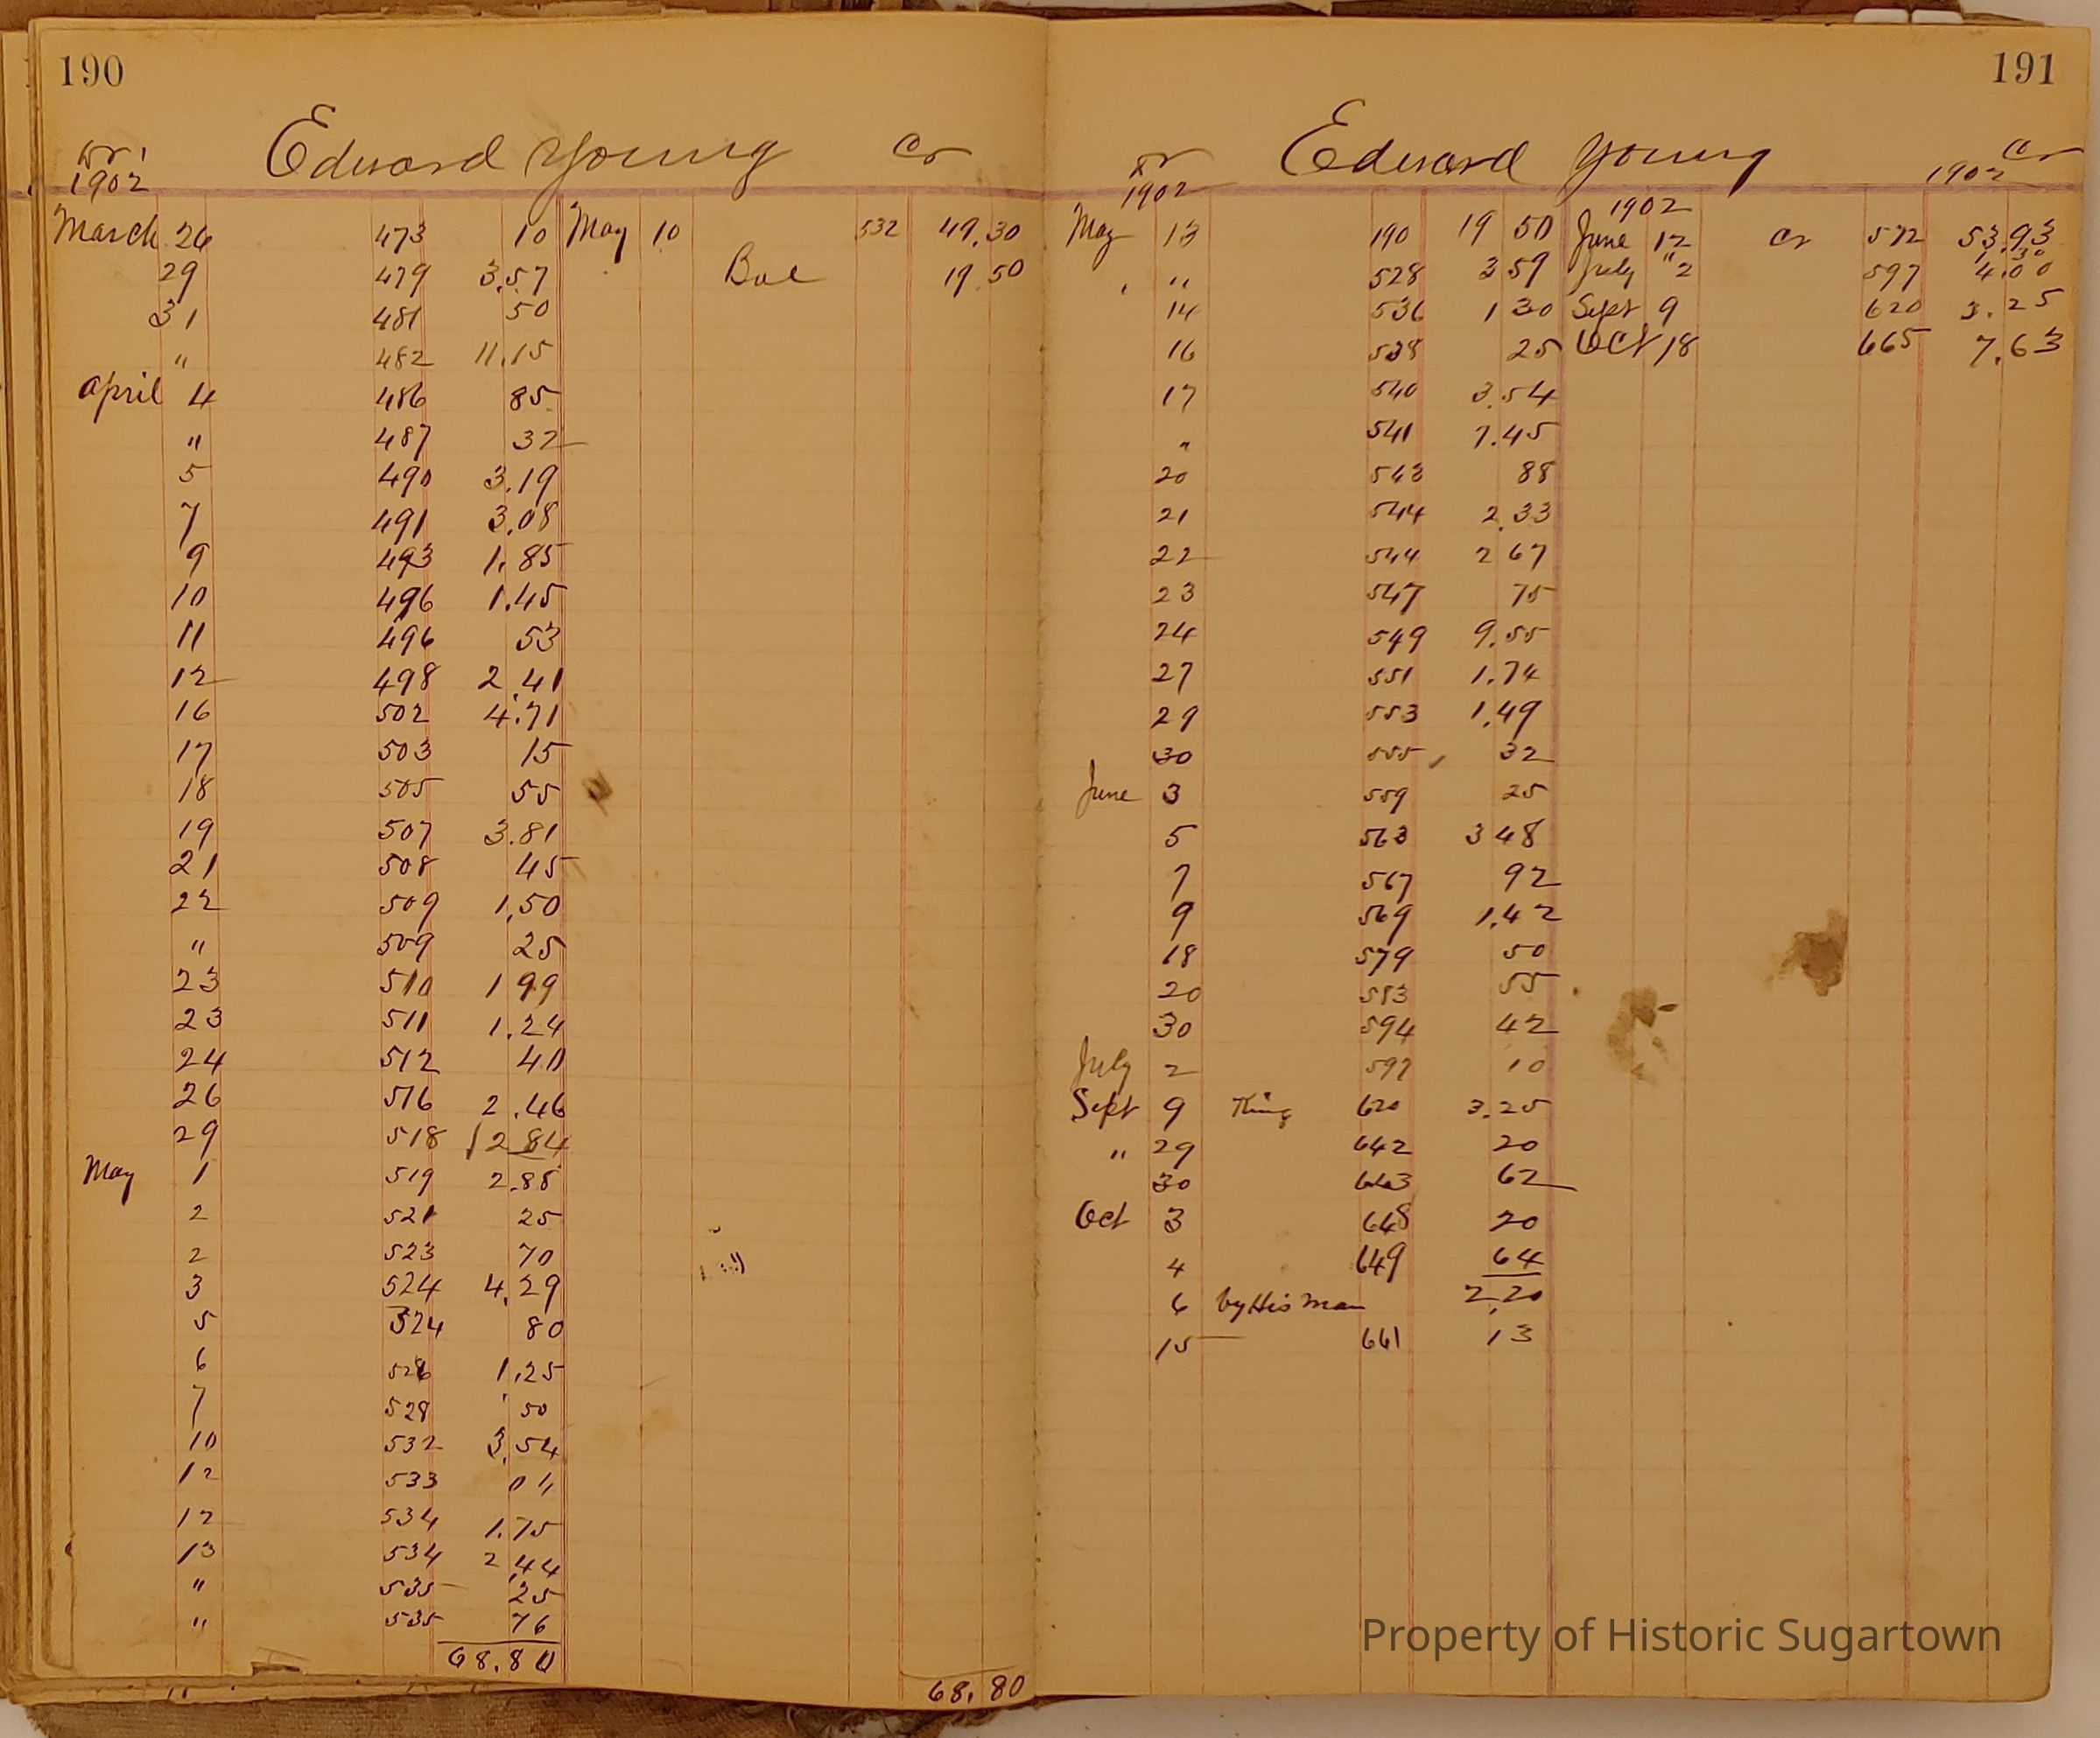 190
Edward Young
Dr
Cr
1902
March 26 473 10 May 10 532 49.30
29 479 3.57 Bal 19.50
31 481 50
" 482 11.15
April 4 486 85
" 487 32
5 490 3.19
7 491 3.08
9 493 1.85
10 496 1.45
11 496 53
12 498 2.41
16 502 4.71
17 503 15
18 505 55
19 507 3.81
21 508 45
22 509 1.50
" 509 25
23 510 1 99
23 511 1.24
24 512 40
26 516 2.46
29 518 2 84
May 1 519 2.85
2 521 25
2 523 70
3 524 4.29
5 524 80
6 526 1.25
7 528 50
10 532 3.54
12 533
12 534 1.75
13 534 2.44
" 535 25
" 535 76
68.80
68.80
191
Edward Young
Dr
Cr
1902
1902
1902
May 13 190 19 50 June 12 Cr 572 53.93
" 528 3 59 July "2 597 4.00
14 536 1 30 Sept 9 620 3.25
16 538 25 Oct 18 665 7.63
17 540 3.54
" 541 7.45
20 543 88
21 544 2.33
22 544 2 67
23 547 75
24 549 9.55
27 551 1.74
29 553 1.49
30 555 32
June 3 559 25
5 563 3 48
7 567 92
9 569 1.42
18 579 50
20 583 55
30 594 42
July 2 597 10
Sept 9 620 3.25
" 29 642 20
30 643 62
Oct 3 648 20
4 649 64
6 by His man 2.20
15 661 13
Property of Historic Sugartown